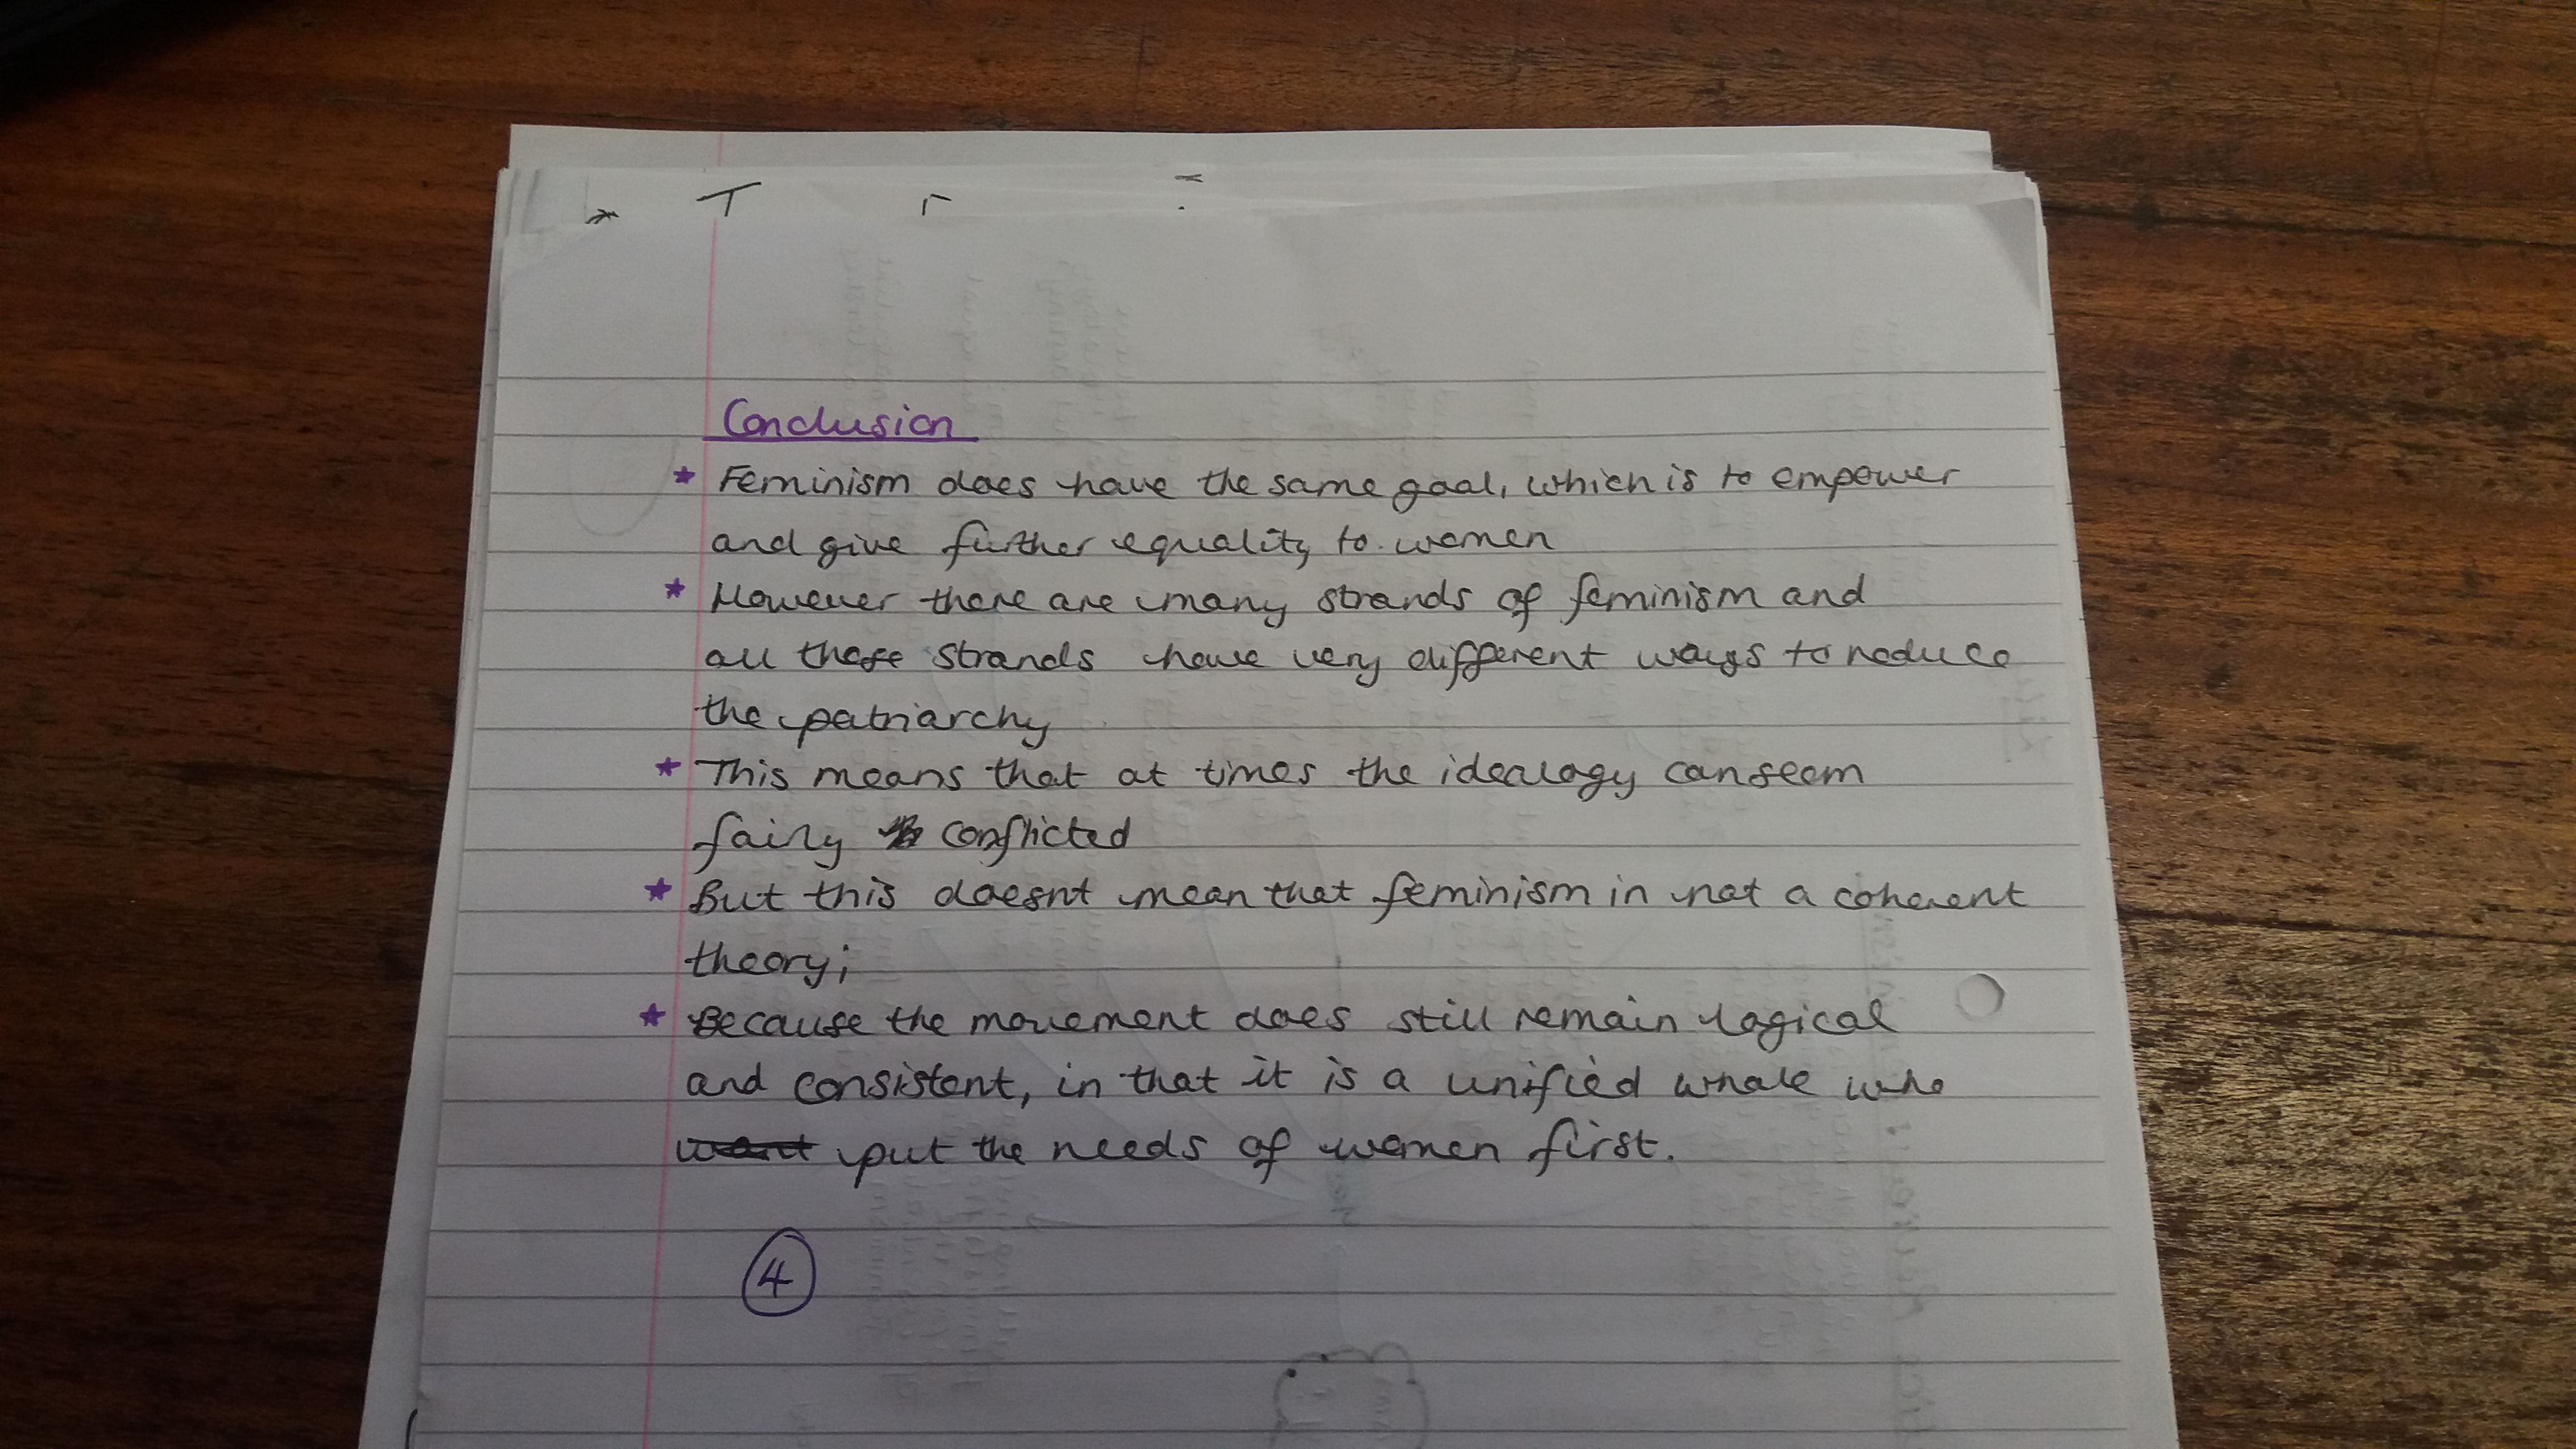 Conclusion
* Feminism does have the same goal, which is to empower
and give further equality to women
* However there are many strands of feminism and
all these strands have very different ways to reduce
the patriarchy
* This means that at times the idealogy can seem
fairly conflicted
* But this doesnt mean that feminism in not a coherent
theory;
* Because the movement does still remain logical
and consistent, in that it is a unified whole who
want put the needs of women first.
4